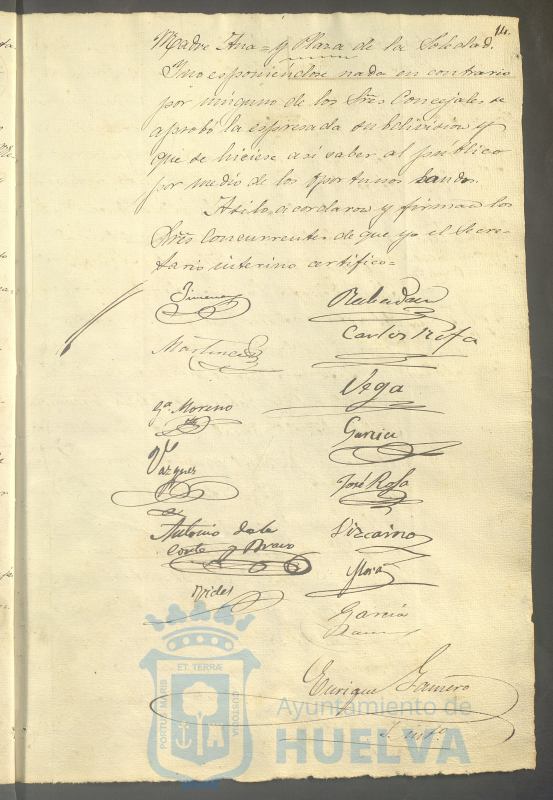 14.
Madre Ana = y Plaza de la Soledad.
Y no esponiendose nada en contrario
por ninguno de los Sres Concejales se
aprobó la espresada subdivision y
que se hiciese así saber al publico
por medio de los oportunos bandos.
Asi lo acordaron y firman los
Sres Concurrentes de que yo el Secre-
tario interino certifico =
Jimenez
Martinez
Ga. Moreno
Vazquez
Antonio de la
Corte y Bravo
Carlos Rofa
Vega
Garcia
José Rofa
Vizcaino
García
Enrique Gamero
S. into.
PORTUS MARIS ET TERRÆ CUSTODIA
Ayuntamiento de
HUELVA